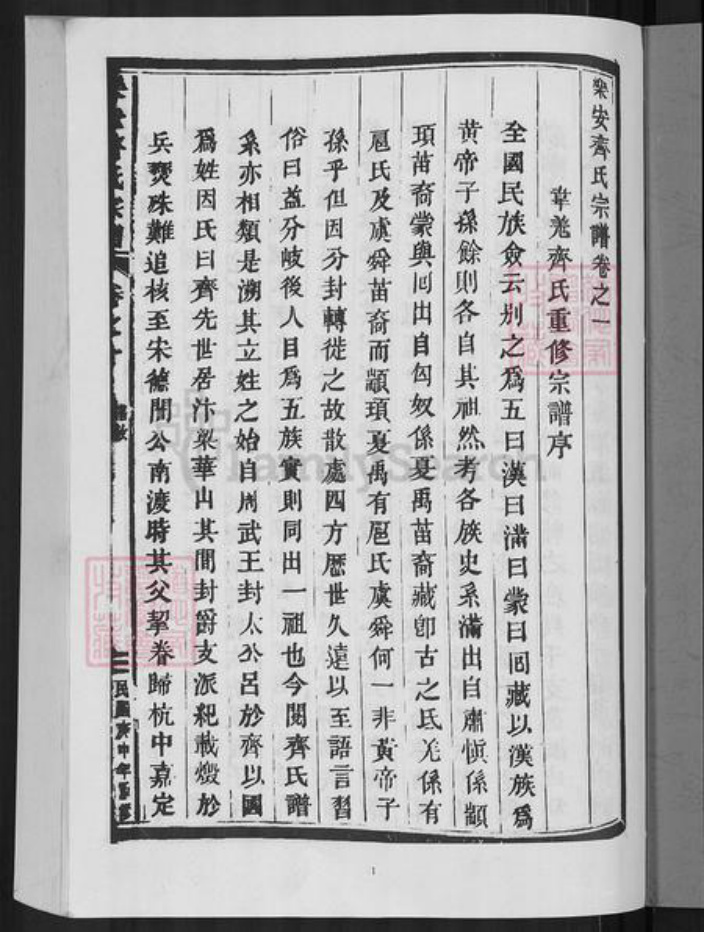 樂安齊氏宗譜卷之一
韋羗齊氏重修宗譜序
全國民族僉云别之爲五曰漢曰滿曰蒙曰回藏以漢族爲
黃帝子孫餘則各自其祖然考各族史系滿出自肅愼係顓
頊苗裔蒙與回出自匈奴係夏禹苗裔藏卽古之氐羌係有
扈氏及虞舜苗裔而顓頊夏禹有扈氏虞舜何一非黃帝子
孫乎但因分封轉徙之故散處四方歷世久遠以至語言習
俗日益分岐後人目爲五族實則同出一祖也今閱齊氏譜
系亦相類是溯其立姓之始自周武王封太公呂於齊以國
爲姓因氏曰齊先世居汴梁華山其間封爵支派紀載燬於
兵燹殊難追核至宋德間公南渡時其父挈眷歸杭中嘉定
樂安齊氏宗譜
卷之一
民國庚申年重修
FamilySearch
1